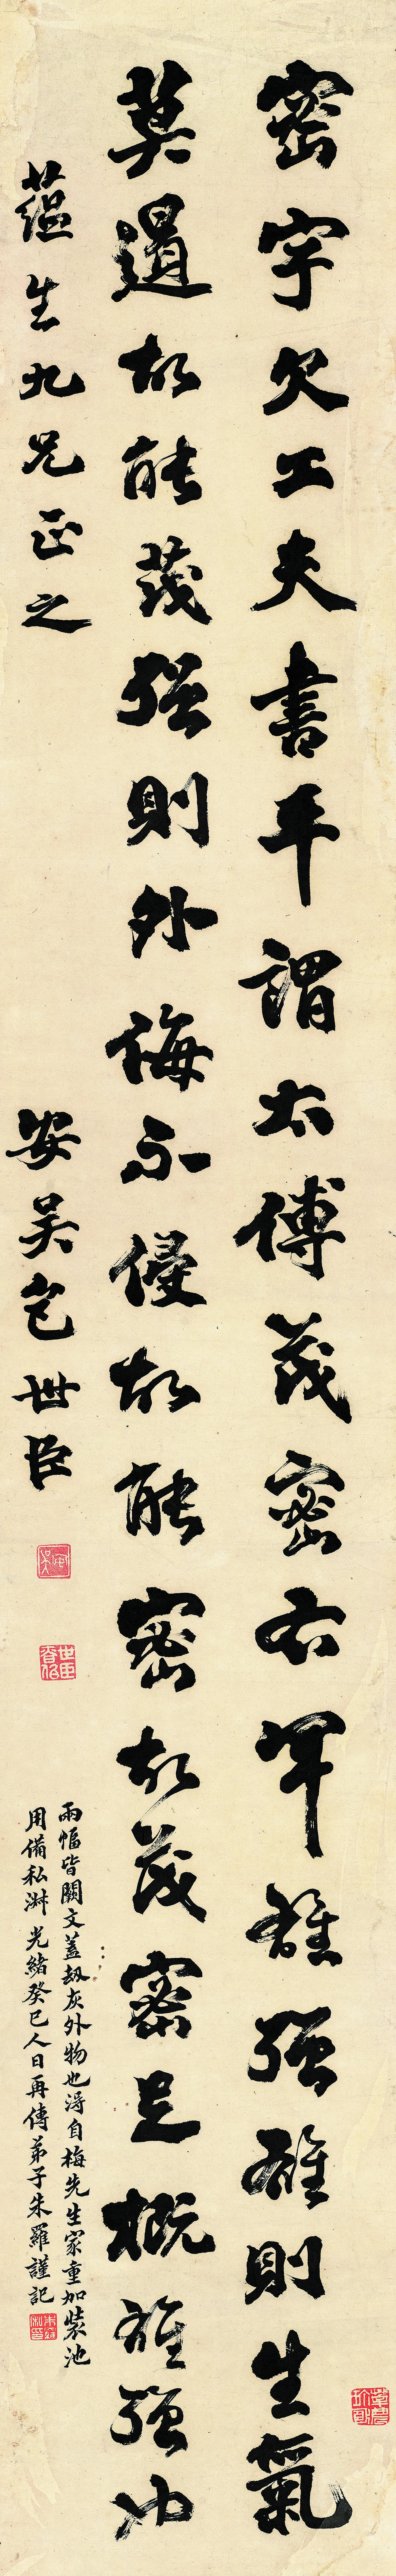 密字欠工夫書平謂太傅茂密右軍雄強雄則生氣
莫遏故能茂強則外侮不侵故能密故茂密足概雄強也
蘊生九兄正之
安吳包世臣
兩幅皆闕文蓋劫灰外物也得自梅先生家重加裝池
用備私淑光緒癸巳人日再傳弟子朱羅謹記